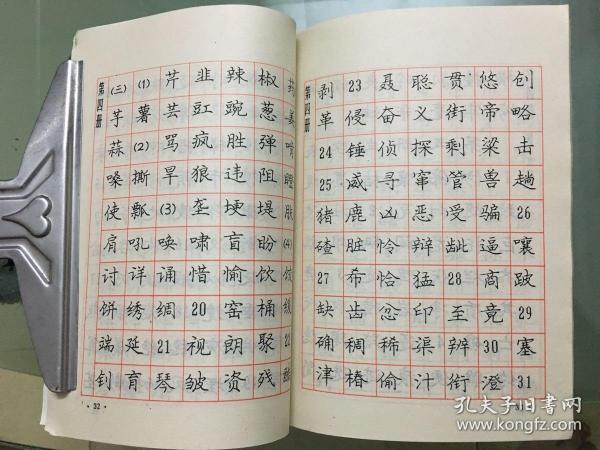 第四册
(三) (1) 芹 韭 辣 椒
芋 薯 芸 豇 豌 葱 姜
蒜 (2) 骂 疯 胜 弹
嗓 撕 旱 狼 违 阻
使 瓢 (3) 垄 埂 堤
肩 吼 唤 啸 盲 盼 (4)
讨 详 诵 惜 愉 饮
饼 绣 绸 20 窑 桶
端 延 21 视 朗 聚
钊 育 琴 皱 资 残
·32·
第四册
剥 23 聂 聪 贯 悠 创
革 侵 奋 义 街 帝 略
24 锤 侦 探 剩 梁 击
25 威 寻 窜 管 兽 趟
猪 鹿 凶 恶 受 骗 26
碴 脏 怜 辩 龇 逼 嚷
27 布 恰 猛 28 商 跛
缺 齿 忿 印 至 竟 29
确 稠 稀 渠 辨 30 塞
津 椿 偷 汁 衔 澄 31
孔夫子旧书网
www.kongfz.com